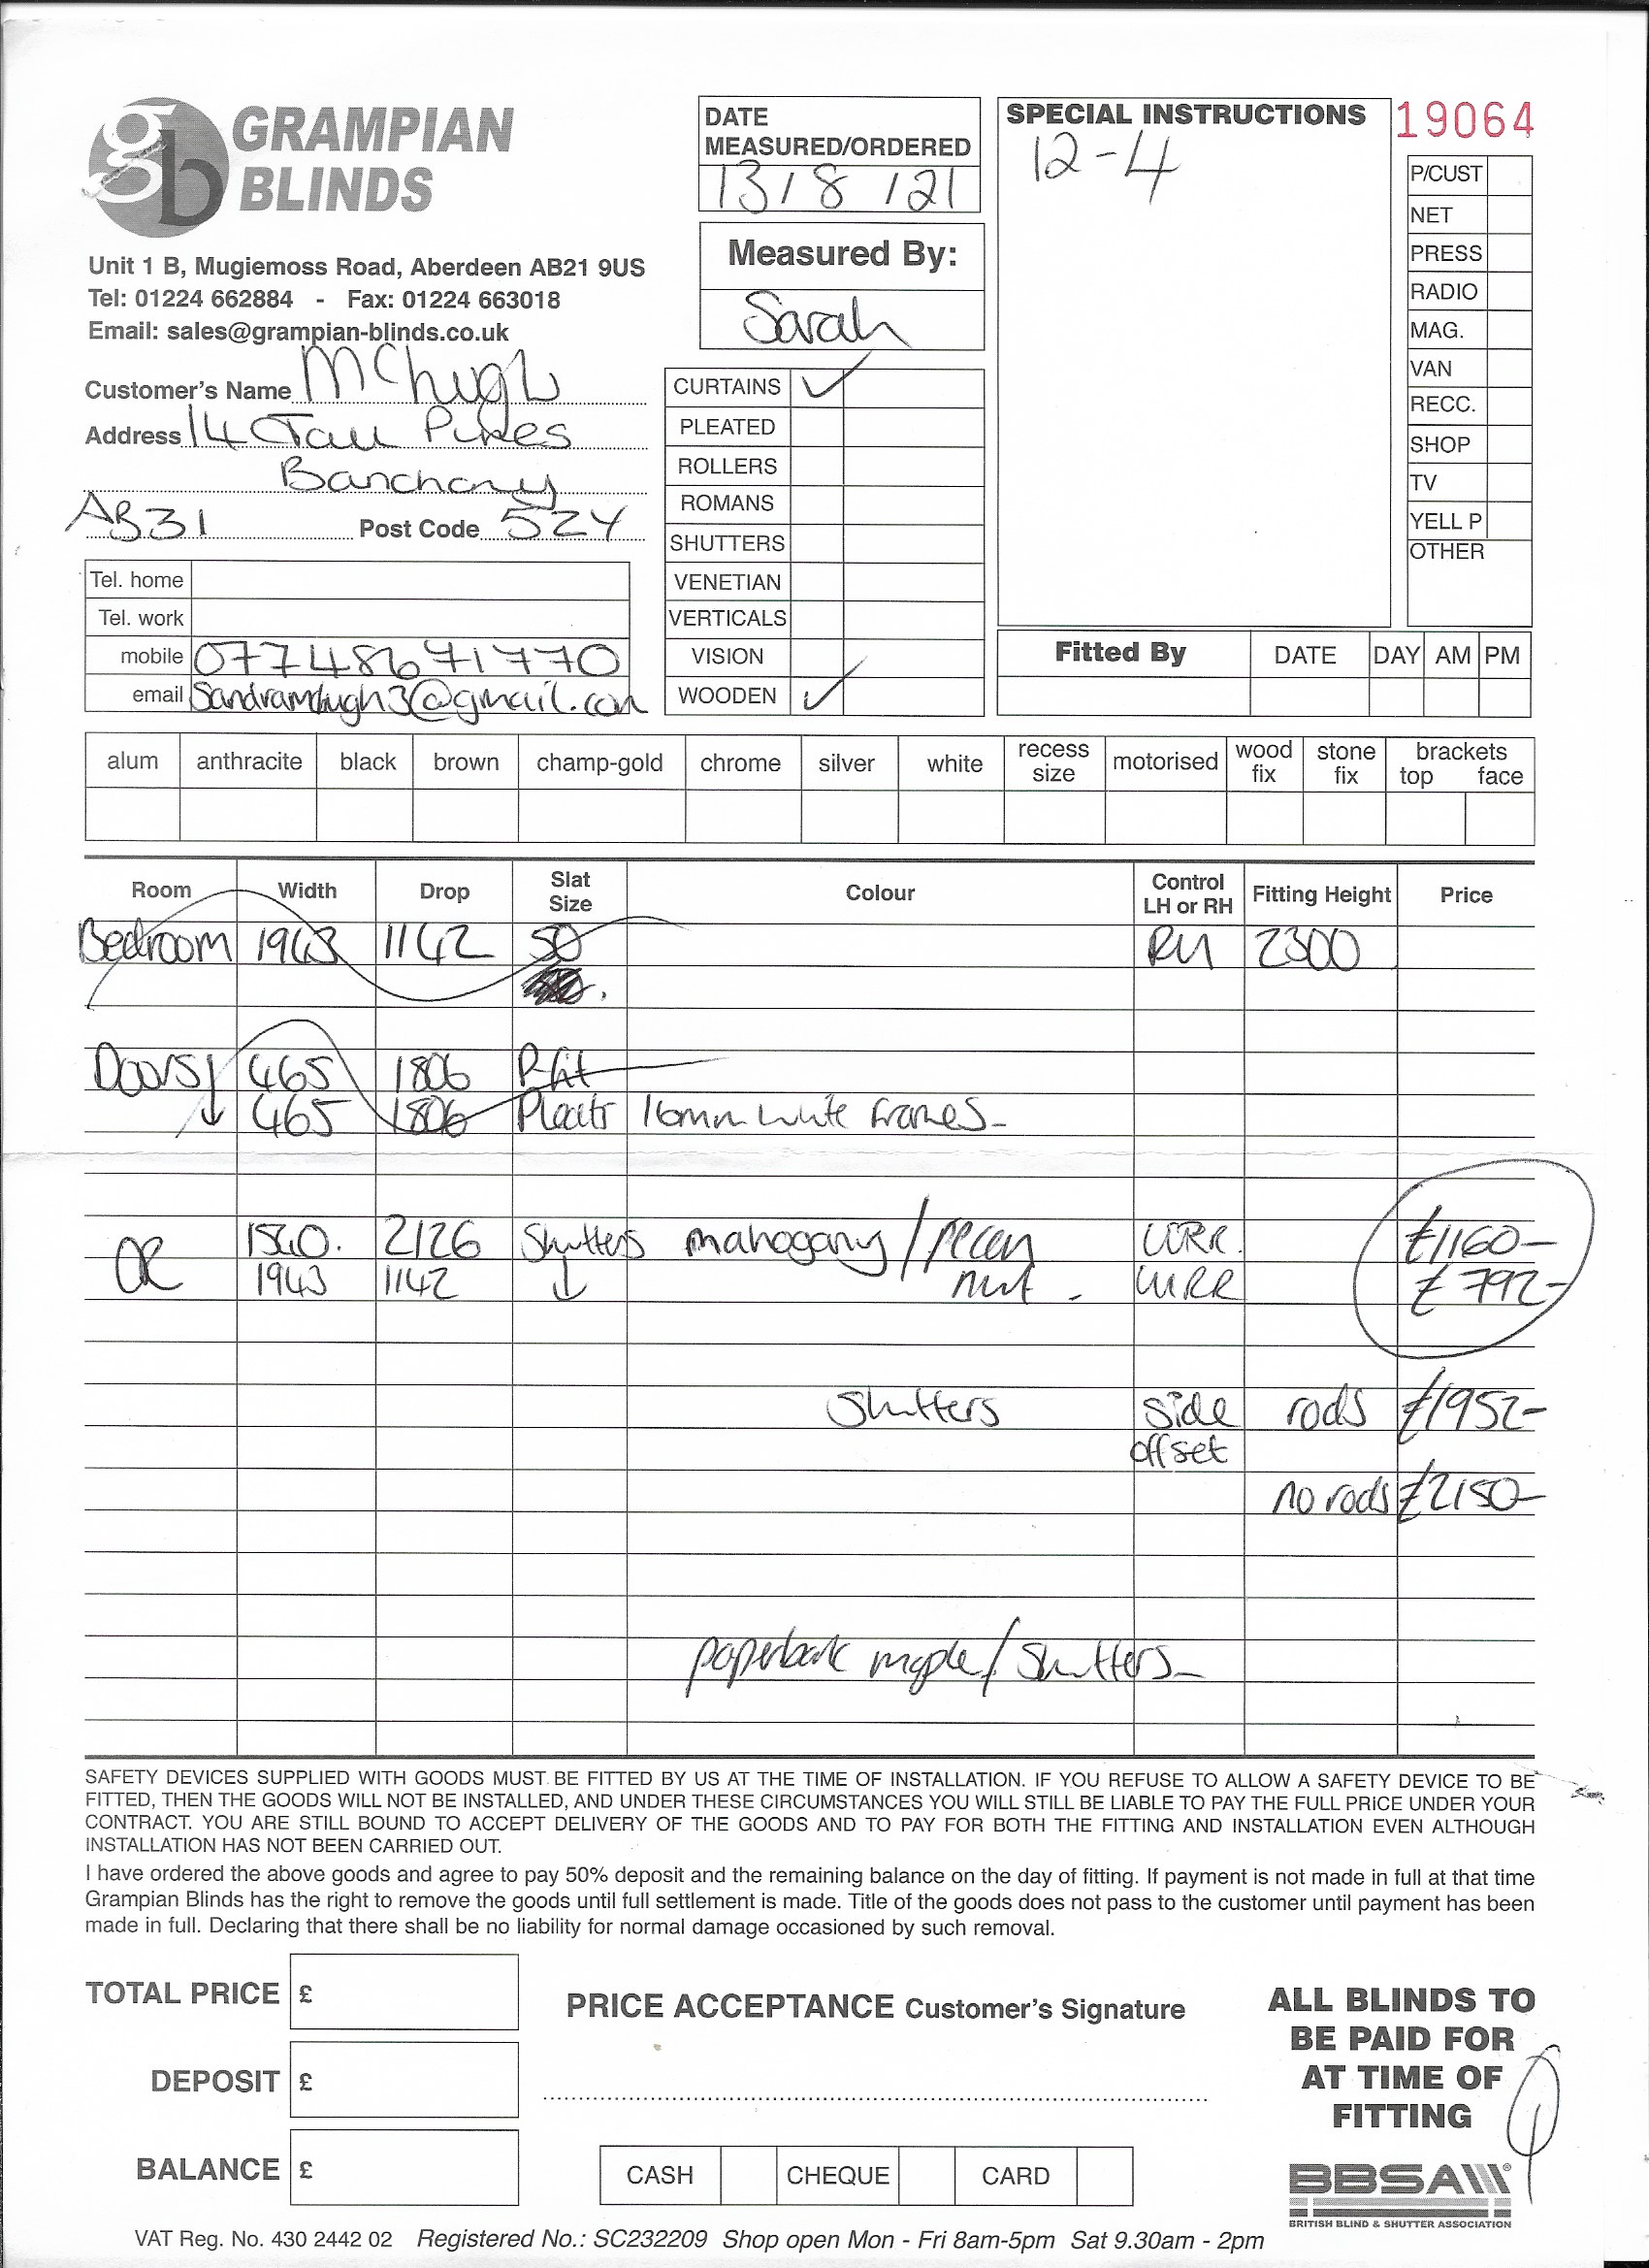 GRAMPIAN
BLINDS
Unit 1 B, Mugiemoss Road, Aberdeen AB21 9US
Tel: 01224 662884 - Fax: 01224 663018
Email: sales@grampian-blinds.co.uk
Customer's Name McHugh
Address 14 Tall Pines
Banchory
AB31 Post Code 5ZY
Tel. home
Tel. work
mobile 07748671770
email sandramchugh3@gmail.com
DATE
MEASURED/ORDERED
13/8/21
Measured By:
Sarah
CURTAINS ✓
PLEATED
ROLLERS
ROMANS
SHUTTERS
VENETIAN
VERTICALS
VISION
WOODEN ✓
SPECIAL INSTRUCTIONS
12-4
19064
P/CUST
NET
PRESS
RADIO
MAG.
VAN
RECC.
SHOP
TV
YELL P
OTHER
Fitted By DATE DAY AM PM
alum anthracite black brown champ-gold chrome silver white recess size motorised wood fix stone fix brackets top face
Room Width Drop Slat Size Colour Control LH or RH Fitting Height Price
Bedroom 1943 1142 50 RH 2300
Doors 465 1806 P.fit
↓ 465 1806 16mm white frames-
OR 1540. 2126 Shutters mahogany/pecan £1160-
1943 1142 ↓ nut - £792-
Shutters side rods £1952-
offset
no rods £2150-
paperbark maple/Shutters-
SAFETY DEVICES SUPPLIED WITH GOODS MUST BE FITTED BY US AT THE TIME OF INSTALLATION. IF YOU REFUSE TO ALLOW A SAFETY DEVICE TO BE
FITTED, THEN THE GOODS WILL NOT BE INSTALLED, AND UNDER THESE CIRCUMSTANCES YOU WILL STILL BE LIABLE TO PAY THE FULL PRICE UNDER YOUR
CONTRACT. YOU ARE STILL BOUND TO ACCEPT DELIVERY OF THE GOODS AND TO PAY FOR BOTH THE FITTING AND INSTALLATION EVEN ALTHOUGH
INSTALLATION HAS NOT BEEN CARRIED OUT.
I have ordered the above goods and agree to pay 50% deposit and the remaining balance on the day of fitting. If payment is not made in full at that time
Grampian Blinds has the right to remove the goods until full settlement is made. Title of the goods does not pass to the customer until payment has been
made in full. Declaring that there shall be no liability for normal damage occasioned by such removal.
TOTAL PRICE £
DEPOSIT £
BALANCE £
PRICE ACCEPTANCE Customer's Signature
CASH CHEQUE CARD
ALL BLINDS TO
BE PAID FOR
AT TIME OF
FITTING
BBSA
BRITISH BLIND & SHUTTER ASSOCIATION
VAT Reg. No. 430 2442 02 Registered No.: SC232209 Shop open Mon - Fri 8am-5pm Sat 9.30am - 2pm